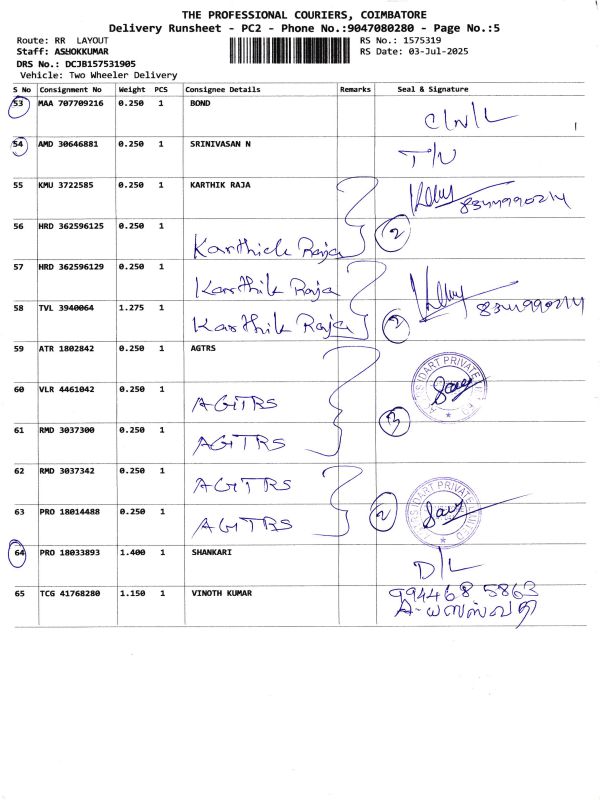 THE PROFESSIONAL COURIERS, COIMBATORE
Delivery Runsheet - PC2 - Phone No.:9047080280 - Page No.:5
Route: RR LAYOUT RS No.: 1575319
Staff: ASHOKKUMAR RS Date: 03-Jul-2025
DRS No.: DCJB157531905
Vehicle: Two Wheeler Delivery
S No Consignment No Weight PCS Consignee Details Remarks Seal & Signature
53 MAA 707709216 0.250 1 BOND C/N/L
54 AMD 30646881 0.250 1 SRINIVASAN N T/U
55 KMU 3722585 0.250 1 KARTHIK RAJA 8344990214
56 HRD 362596125 0.250 1 Karthick Raja 2
57 HRD 362596129 0.250 1 Karthik Raja
58 TVL 3940064 1.275 1 Karthik Raja 2 8344990214
59 ATR 1802842 0.250 1 AGTRS
60 VLR 4461042 0.250 1 AGTRS
61 RMD 3037300 0.250 1 AGTRS 3
62 RMD 3037342 0.250 1 AGTRS
63 PRO 18014488 0.250 1 AGTRS 2
64 PRO 18033893 1.400 1 SHANKARI D/L
65 TCG 41768280 1.150 1 VINOTH KUMAR 994468 5863